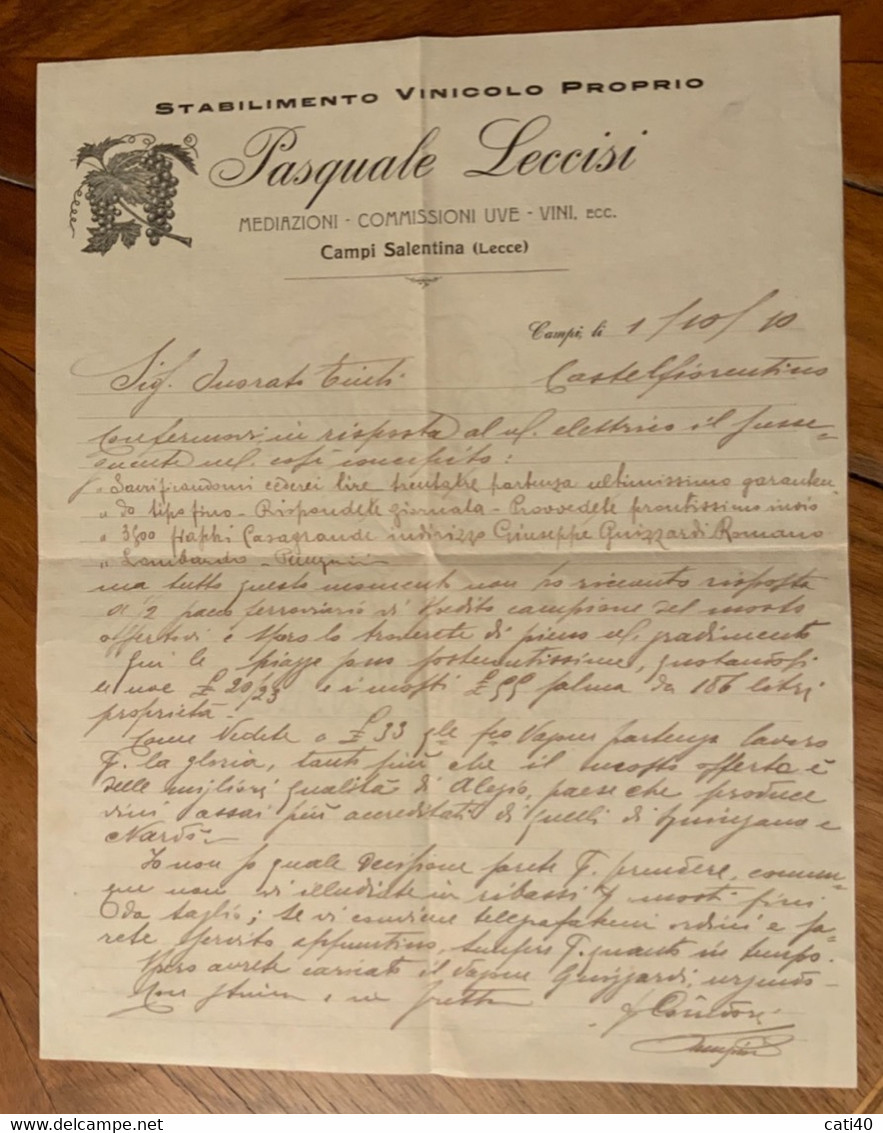 STABILIMENTO VINICOLO PROPRIO
Pasquale Leccisi
MEDIAZIONI - COMMISSIONI UVE - VINI, ECC.
Campi Salentina (Lecce)
Campi, li 1/10/10
Sig. Castelfiorentino
in risposta al elettrico il susse-
guente così concepito:
" Sacrificandomi cederei lire trentatre partenza ultimissimo garanten
" do tipo fino - Rispondete giornata - Provvedete prontissimo invio
" 3500 Casagrande indirizzo Giuseppe Guizzardi Romano
" Lombardo -
ma tutto questo momento non ho ricevuto risposta
A 1/2 pacco ferroviario vi spedito campione del mosto
offertovi e spero lo troverete di pieno gradimento
Qui le piazze sono sostenutissime, quotandosi
le uve £ 20/23 e i mosti £ 55 salma da 186 litri
proprietà -
Come vedete a £ 33 vapore partenza lavoro
la gloria, tanto più che il mosto offerto è
delle migliori qualità di Alezio, paese che produce
vini assai più accreditati di quelli di e
Nardò -
Io non so quale decisione farete prendere, comun-
que non vi illudiate in ribassi mosti fini
da taglio; se vi conviene telegrafatemi ordini e sa-
rete servito appuntino, quanto in tempo.
Spero avrete caricato il vapore Guizzardi, urgendo -
Con stima